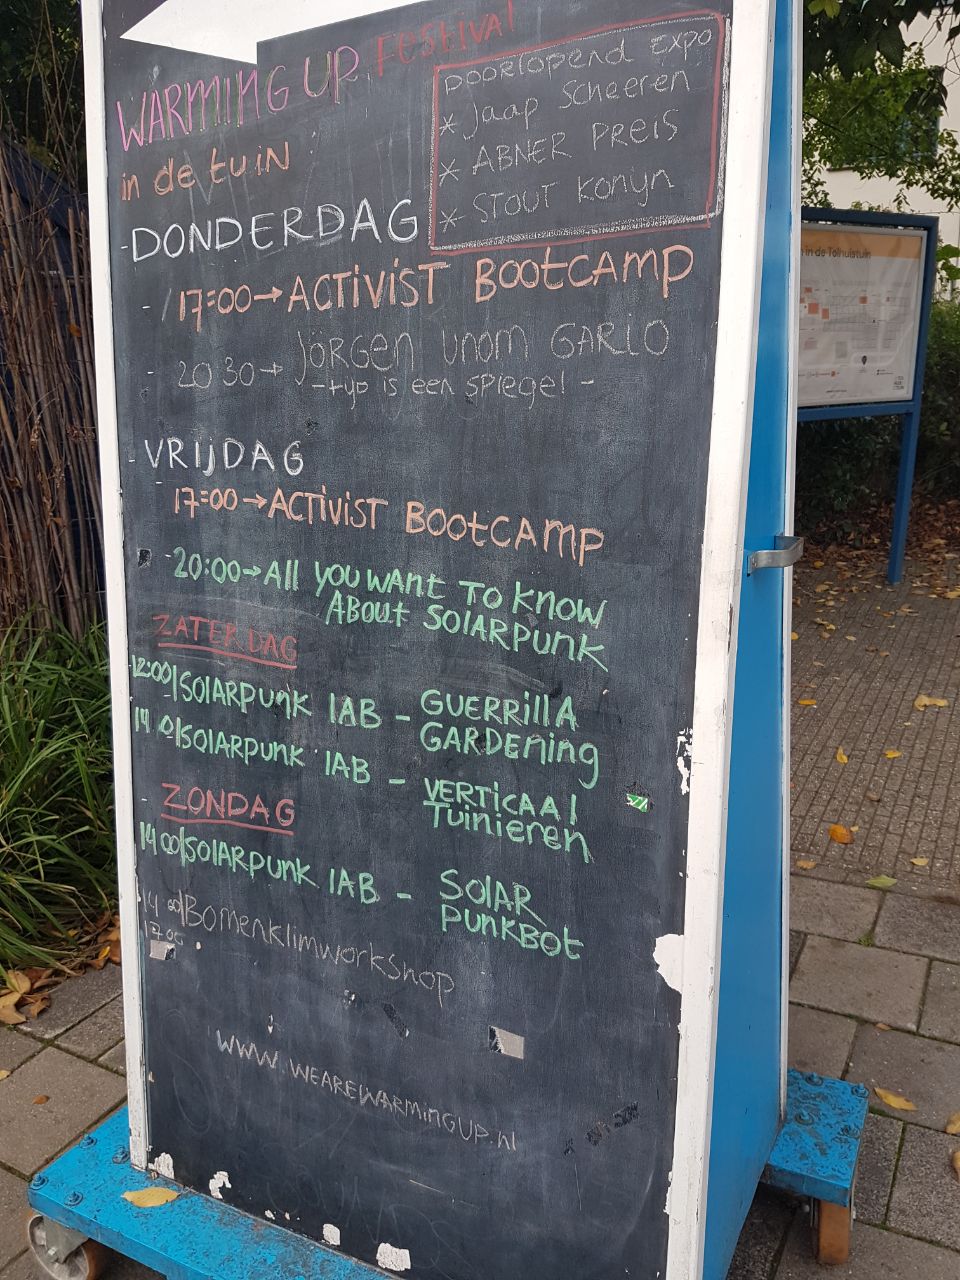 WARMING UP FESTIVAL
in de tuin
doorlopend Expo
* Jaap Scheeren
* ABNER PREIS
* STOUT Konyn
- DONDERDAG
- 17:00→ACTIVIST BOOTCAMP
- 20 30→ JÖRGEn UNOM GARIO
- tyd is een SPIEGEL -
- VRIJDAG
- 17:00→ACTIVIST BOOTCAMP
- 20:00→All YOU WANT TO KNOW
ABOUT SOLARPUNK
ZATERDAG
- 12:00/SOLARPUNK LAB - GUERRILLA
GARDENING
14 0/SOLARPUNK LAB - VERTICAAL
TUINIEREN
- ZONDAG
14 00/SOLARPUNK LAB - SOLAR
PUNKBOT
14 00/Bomenklimworkshop
17 00
www.WEAREWARMINGUP.nl
in de Tolhuistuin